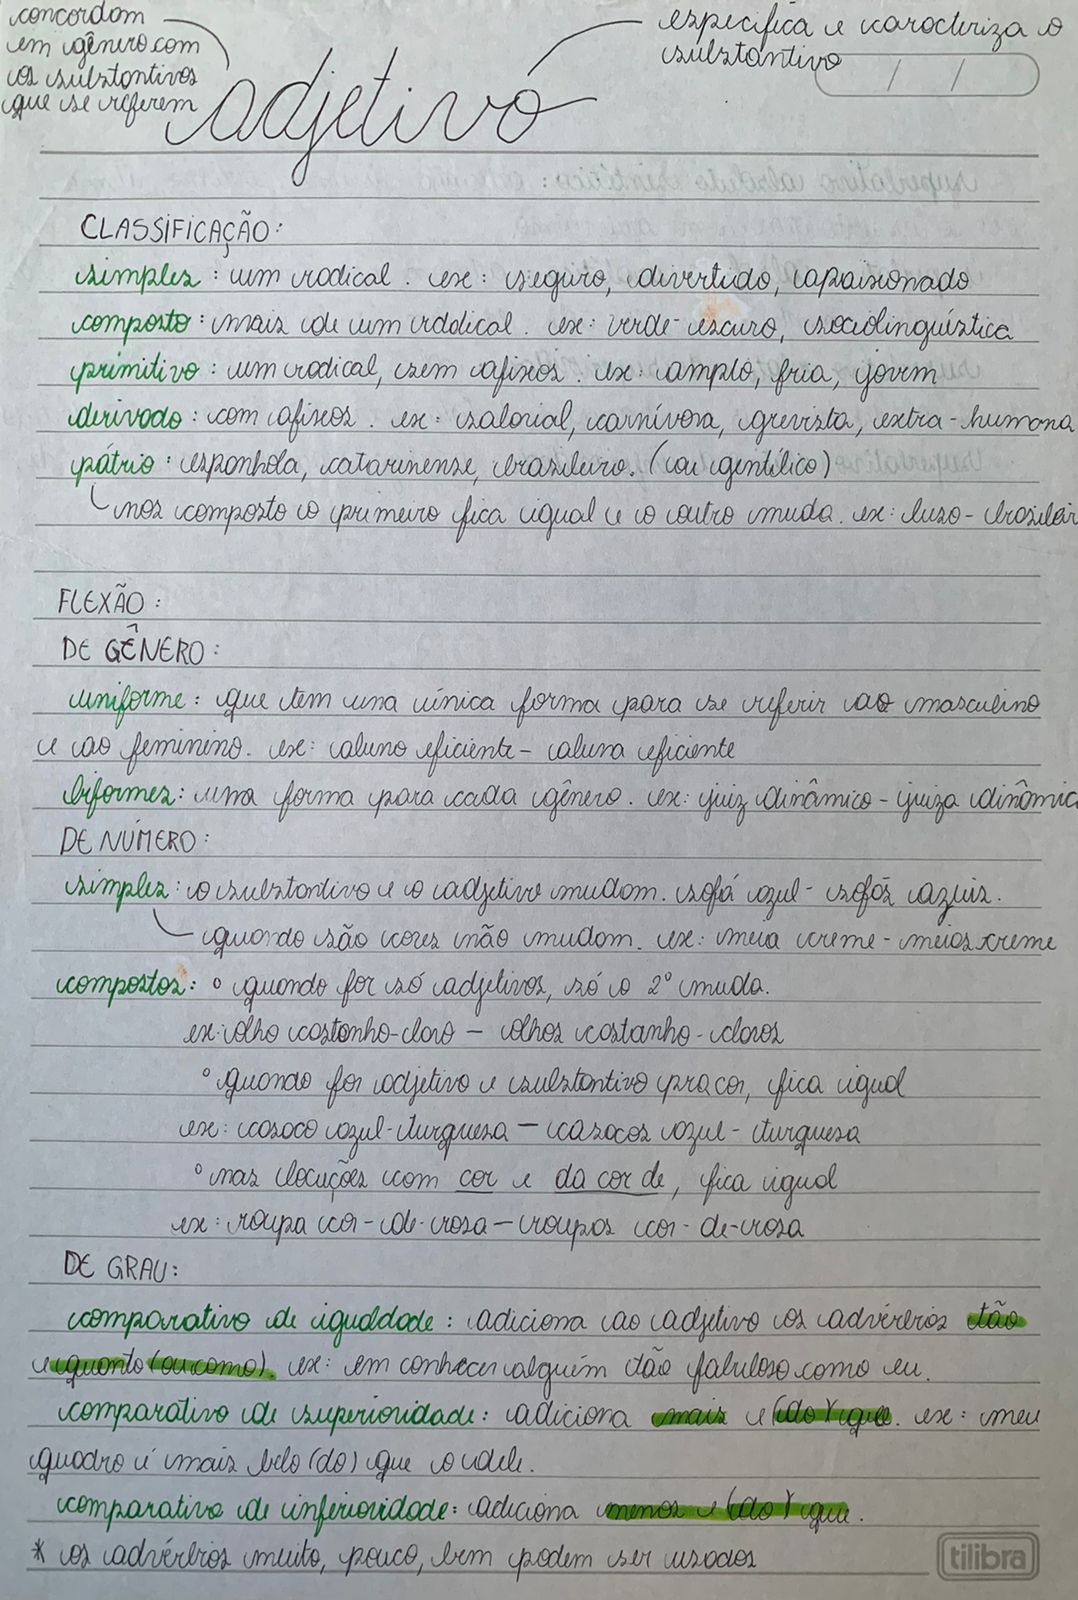 concordam
em gênero com
os substantivos
que se referem
especifica e caracteriza o
substantivo
adjetivo
/ /
CLASSIFICAÇÃO:
simples: um radical. ex: seguro, divertido, apaixonado
composto: mais de um radical. ex: verde-escuro, sociolinguística
primitivo: um radical, sem afixos. ex: amplo, fria, jovem
derivado: com afixos. ex: salarial, carnívora, grevista, extra-humana
pátrio: espanhola, catarinense, brasileiro. (ou gentílico)
nos composto o primeiro fica igual e o outro muda. ex: luso-brasileir
FLEXÃO:
DE GÊNERO:
uniforme: que tem uma única forma para se referir ao masculino
e ao feminino. ex: aluno eficiente - aluna eficiente
biformes: uma forma para cada gênero. ex: juiz dinâmico - juiza dinâmic
DE NÚMERO:
simples: o substantivo e o adjetivo mudam. sofá azul - sofás azuis.
quando são cores não mudam. ex: meia creme - meias creme
compostos: ° quando for só adjetivos, só o 2° muda.
ex: olho castanho-claro — olhos castanho-claros
° quando for adjetivo e substantivo pra cor, fica igual
ex: casaco azul-turquesa — casacos azul-turquesa
° nas locuções com cor e da cor de, fica igual
ex: roupa cor-de-rosa — roupas cor-de-rosa
DE GRAU:
comparativo de igualdade: adiciona ao adjetivo os advérbios tão
e quanto (ou como). ex: em conhecer alguém tão fabuloso como eu.
comparativo de superioridade: adiciona mais e (do) que. ex: meu
quadro é mais belo (do) que o dele.
comparativo de inferioridade: adiciona menos e (do) que.
* os advérbios muito, pouco, bem podem ser usados
tilibra